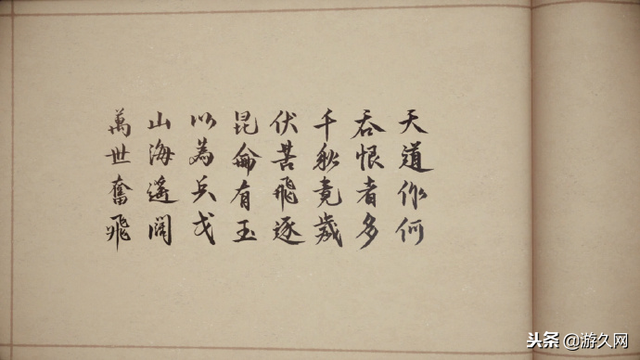 天道作何
吞恨者多
千秋竟歲
伏苦飛逐
昆侖有玉
以為兵戈
山海遙闊
萬世奮飛
头条@游久网